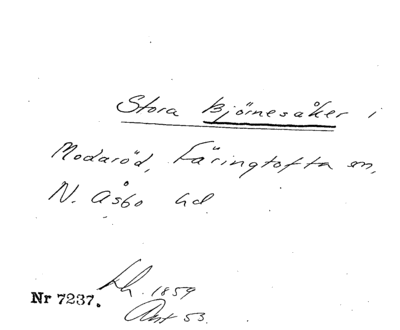 Stora Björnesåker i
Modaröd, Färingtofta sn,
N. Åsbo hd
Lh. 1859
Nr 7237.
Akt 53.